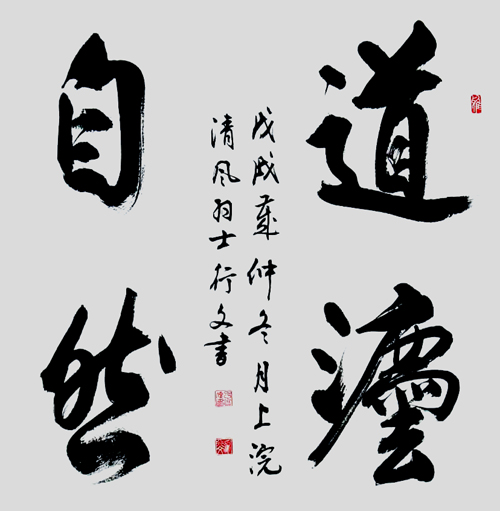 道灋
自然
戊戌歲仲冬月上浣
清风羽士行文書